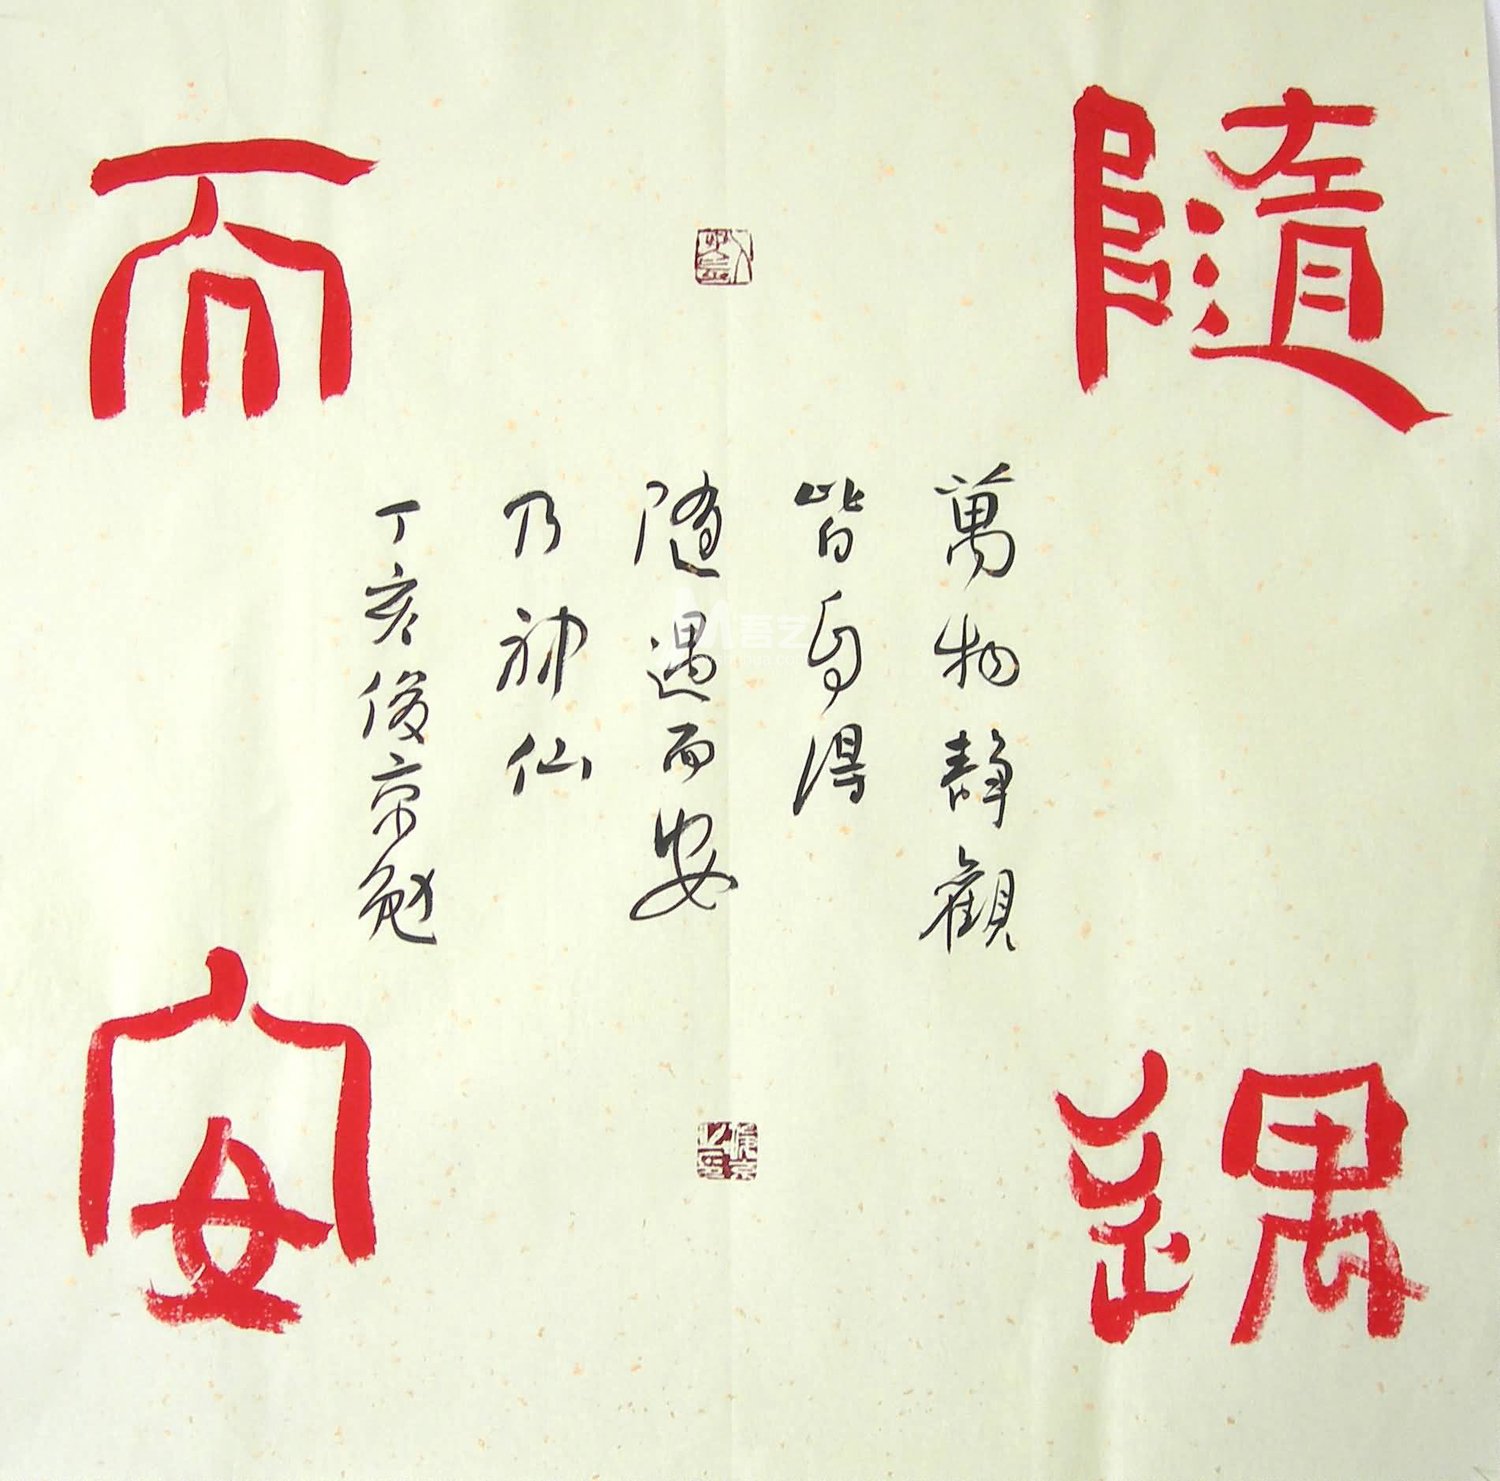 隨遇
而安
萬物靜觀
皆自得
隨遇而安
乃神仙
丁亥俊京勉